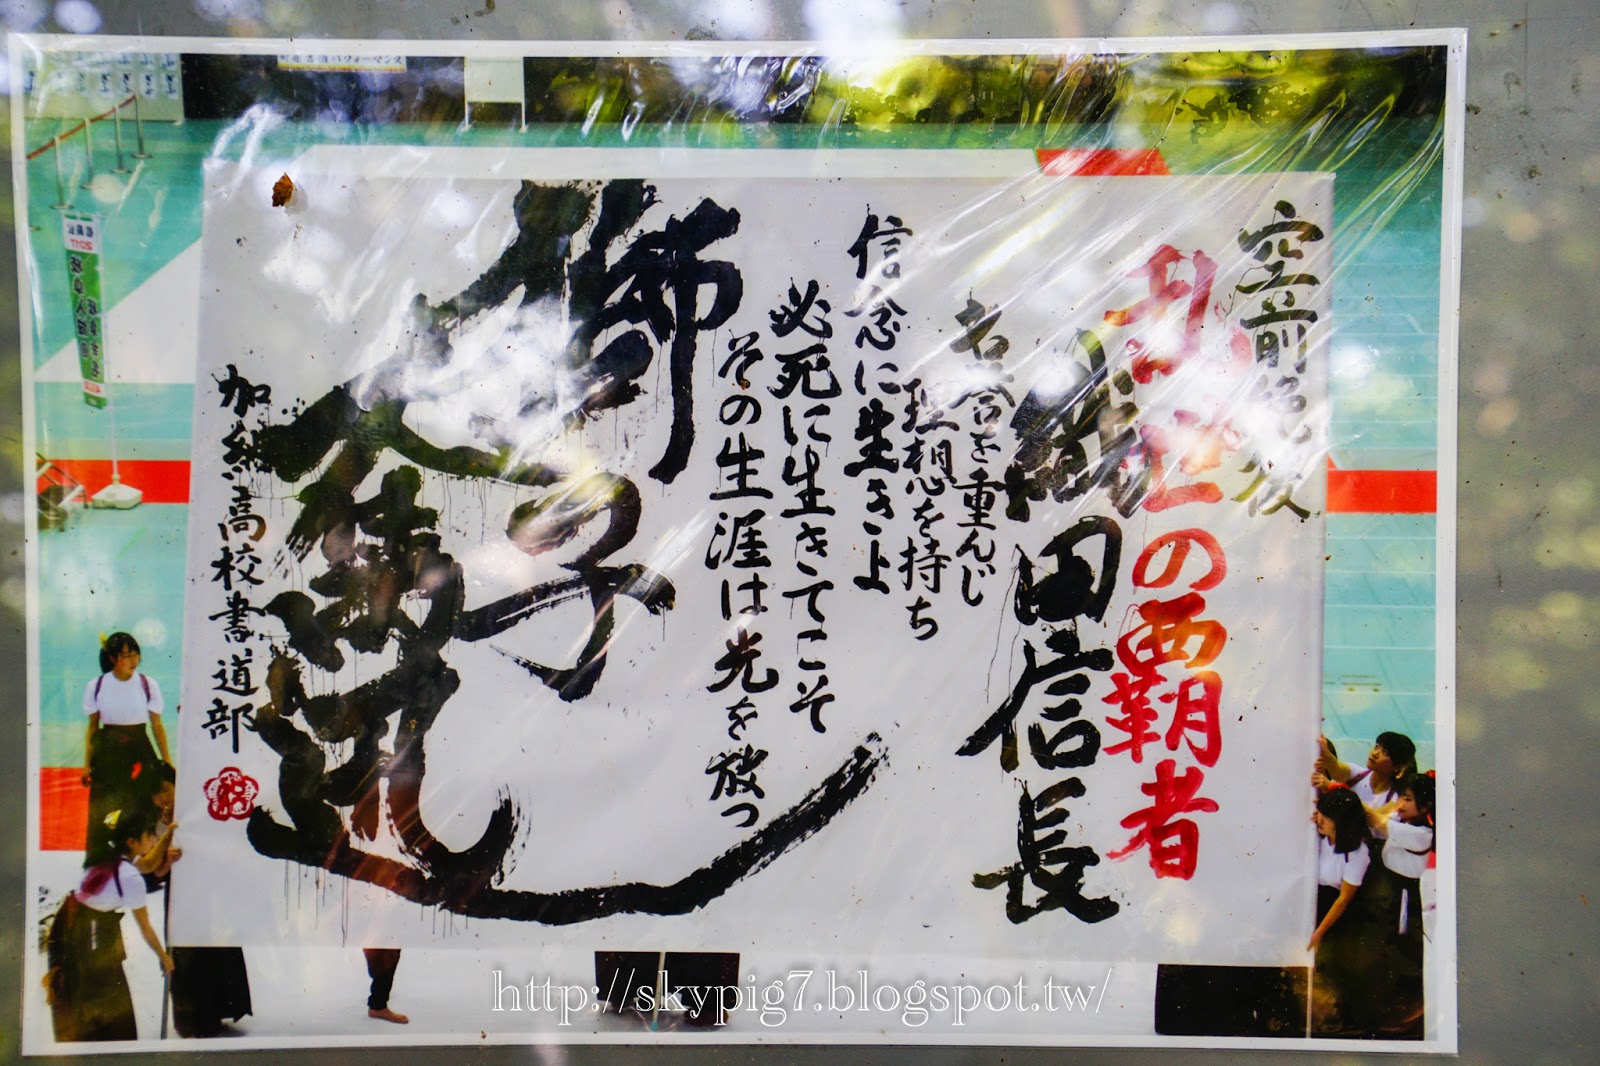 空前絶後
乱世の覇者
織田信長
名誉を重んじ
理想を持ち
信念に生きよ
必死に生きてこそ
その生涯は光を放つ
獅子奮迅
加納高校書道部
パフォーマンス
2017
http://skypig7.blogspot.tw/